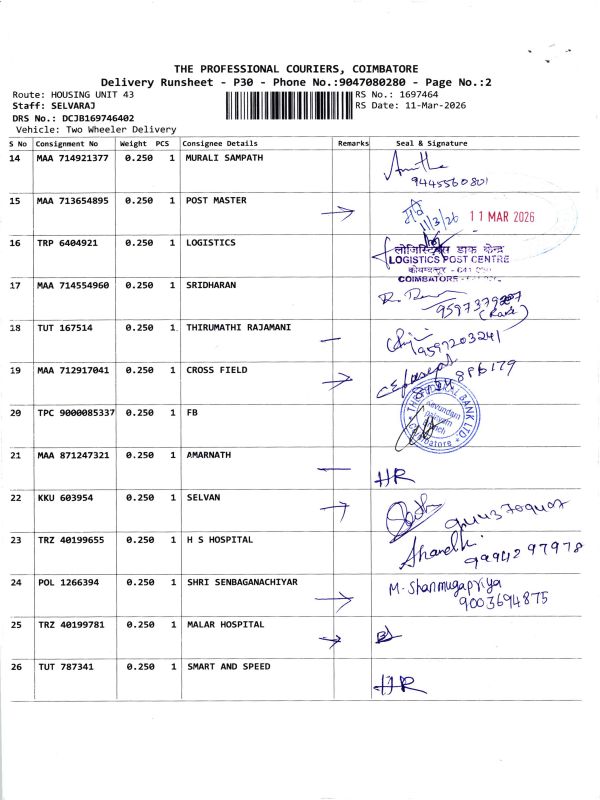 THE PROFESSIONAL COURIERS, COIMBATORE
Delivery Runsheet - P30 - Phone No.:9047080280 - Page No.:2
Route: HOUSING UNIT 43 RS No.: 1697464
Staff: SELVARAJ RS Date: 11-Mar-2026
DRS No.: DCJB169746402
Vehicle: Two Wheeler Delivery
S No Consignment No Weight PCS Consignee Details Remarks Seal & Signature
14 MAA 714921377 0.250 1 MURALI SAMPATH
9445560801
15 MAA 713654895 0.250 1 POST MASTER
11/3/26 11 MAR 2026
16 TRP 6404921 0.250 1 LOGISTICS
लोजिस्टिक्स डाक केन्द्र
LOGISTICS POST CENTRE
कोयम्बटूर - 641
COIMBATORE
17 MAA 714554960 0.250 1 SRIDHARAN
18 TUT 167514 0.250 1 THIRUMATHI RAJAMANI
9597203241
19 MAA 712917041 0.250 1 CROSS FIELD
20 TPC 9000085337 0.250 1 FB
BANK LTD
Coimbatore
21 MAA 871247321 0.250 1 AMARNATH
HR
22 KKU 603954 0.250 1 SELVAN
23 TRZ 40199655 0.250 1 H S HOSPITAL
9994297978
24 POL 1266394 0.250 1 SHRI SENBAGANACHIYAR
M. Shanmugapriya
9003694875
25 TRZ 40199781 0.250 1 MALAR HOSPITAL
26 TUT 787341 0.250 1 SMART AND SPEED
HR